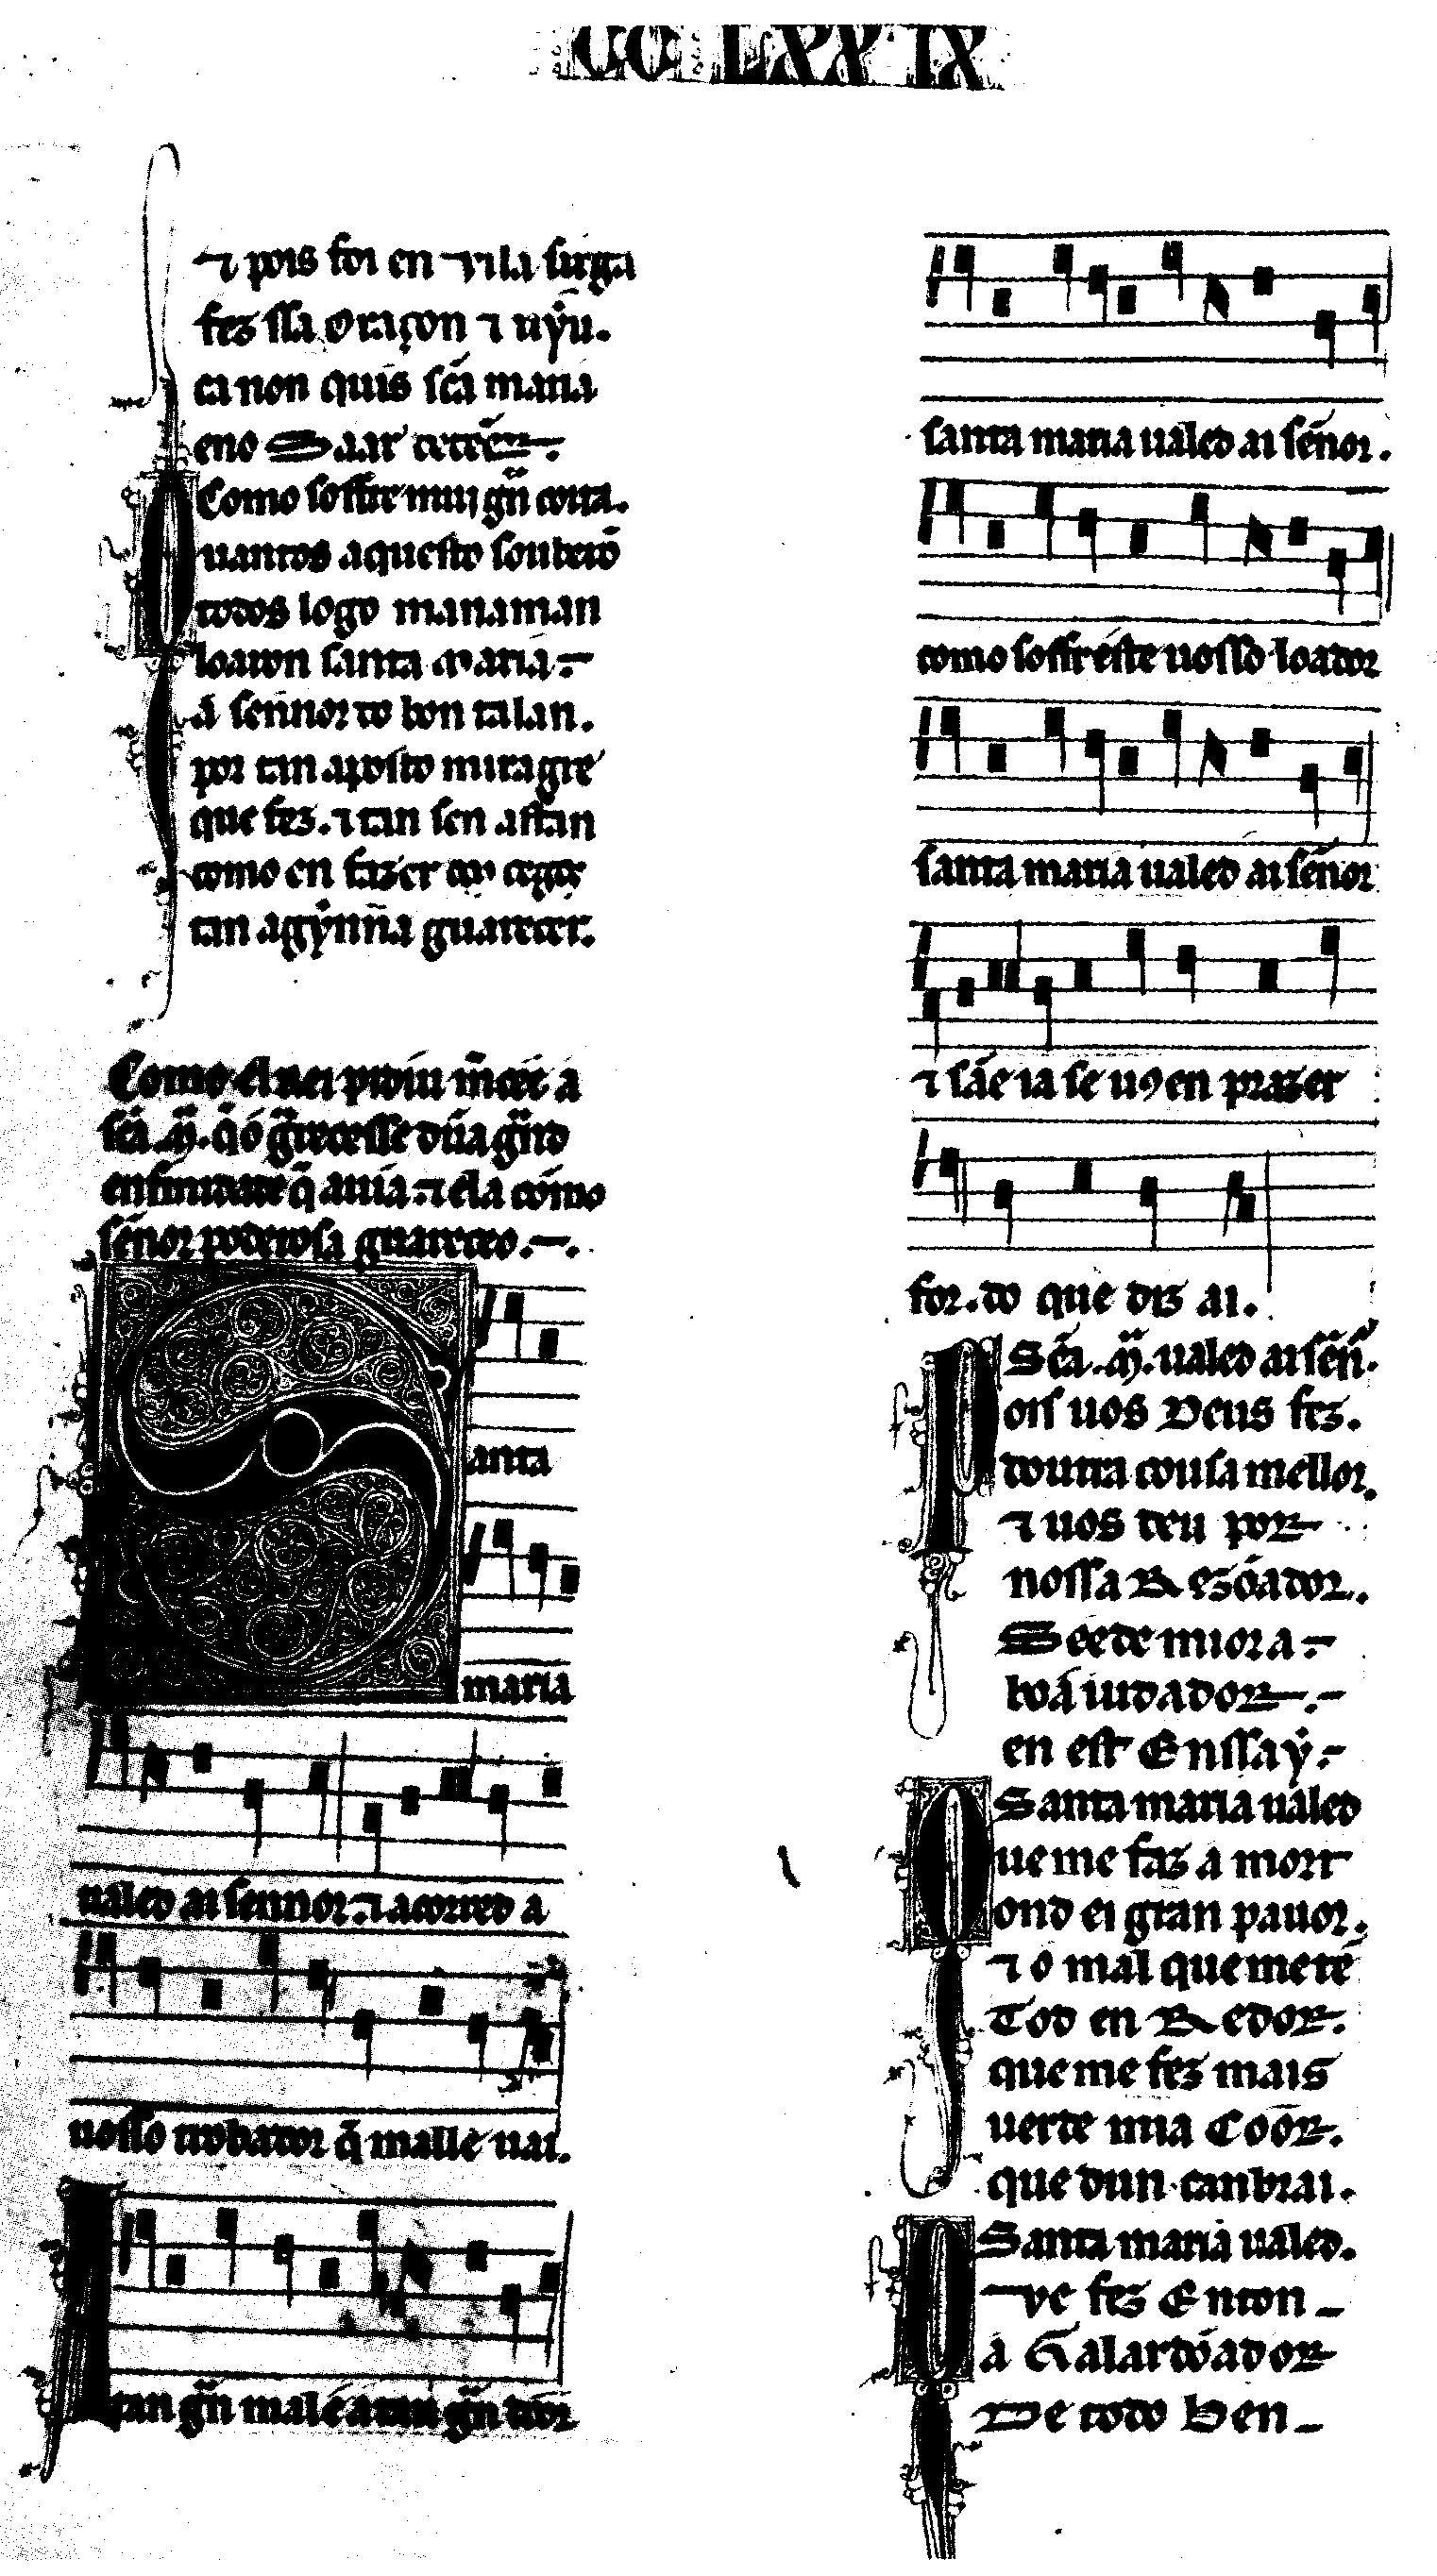 CC LXX IX
⁊ pois foi en Uila sirga
fez ssa oraçon ⁊ uỹu.
ca non quis scã maria
eno Saar deteer.
Como soffre mui gñ coita.
Quantos aquesto souberõ
todos logo manaman
loaron santa maria
a sennor do bon talan.
por tan aposto miragre
que fez. ⁊ tan sen affan
como en fazer
tan agỹnna guarecer.
Como el Rei pidiu m̃cee a
scã .M̃. q̃ o g̃recesse dũa gñd
enfirmidade q̃ auia. ⁊ ela como
señor poderosa guareceo.
Santa
maria
ualed ai sennor. ⁊ acorred a
uosso trobador q̃ malle uai.
A tan gñ mal e a tan gñ door
santa maria ualed ai señor.
como soffr este uosso loador
santa maria ualed ai señor
⁊ sãe ia se uꝯ en prazer
for. do que diz ai.
Scã .M̃. ualed ai señ.
Pois uos Deus fez.
doutra cousa mellor.
⁊ uos deu por
nossa Rezõador.
Seede mi ora
bõa iudador
en est Enssaỹ
Santa maria ualed
Que me faz a mort
ond ei gran pauor.
⁊ o mal que me tẽ
Tod en Redor.
que me fez mais
uerde mia Coor.
que dun canbrai.
Santa maria ualed.
Que fez Enton
a Galardõador
De todo Ben